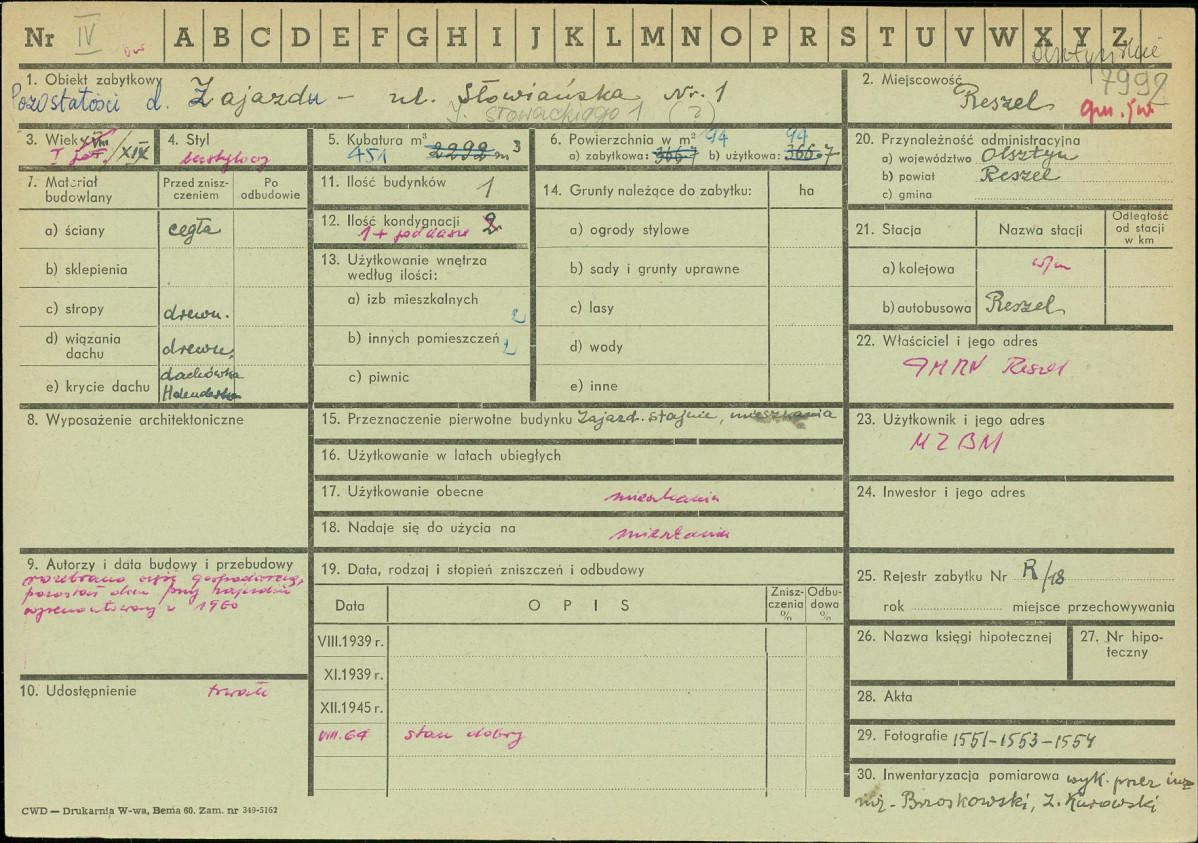 Nr IV A B C D E F G H I J K L M N O P R S T U V W X Y Z
7992
1. Obiekt zabytkowy
Pozostałości d. Zajazdu – ul. Słowiańska Nr. 1
J. Słowackiego 1 (?)
2. Miejscowość
Reszel
3. Wiek XVIII/XIX
4. Styl
bezstylowy
5. Kubatura m³
451 2292 m³
6. Powierzchnia w m² 94 94
a) zabytkowa: 366.7 b) użytkowa: 366.7
20. Przynależność administracyjna
a) województwo Olsztyn
b) powiat Reszel
c) gmina
7. Materiał budowlany
Przed zniszczeniem
Po odbudowie
a) ściany cegła
b) sklepienia
c) stropy drewn.
d) wiązania dachu drewn.
e) krycie dachu dachówka Holenderska
11. Ilość budynków 1
12. Ilość kondygnacji 2
1 + poddasze
13. Użytkowanie wnętrza
według ilości:
a) izb mieszkalnych 2
b) innych pomieszczeń 2
c) piwnic
14. Grunty należące do zabytku: ha
a) ogrody stylowe
b) sady i grunty uprawne
c) lasy
d) wody
e) inne
21. Stacja
Nazwa stacji
Odległość od stacji w km
a) kolejowa w/m
b) autobusowa Reszel
22. Właściciel i jego adres
PMRN Reszel
8. Wyposażenie architektoniczne
15. Przeznaczenie pierwotne budynku Zajazd. stajnie, mieszkania
16. Użytkowanie w latach ubiegłych
17. Użytkowanie obecne mieszkania
18. Nadaje się do użycia na mieszkania
23. Użytkownik i jego adres
MZBM
24. Inwestor i jego adres
9. Autorzy i data budowy i przebudowy
rozebrano część gospodarczą,
pozostał dom przy zajeździe
wyremontowany w 1960
19. Data, rodzaj i stopień zniszczeń i odbudowy
Data
OPIS
Zniszczenia %
Odbudowa %
VIII.1939 r.
XI.1939 r.
XII.1945 r.
VIII.64 stan dobry
25. Rejestr zabytku Nr R/18
rok miejsce przechowywania
26. Nazwa księgi hipotecznej
27. Nr hipoteczny
10. Udostępnienie
28. Akta
29. Fotografie 1551-1553-1554
30. Inwentaryzacja pomiarowa wyk. przez inż
Broskowski, Z. Kurowski
CWD — Drukarnia W-wa, Bema 60. Zam. nr 349-5162